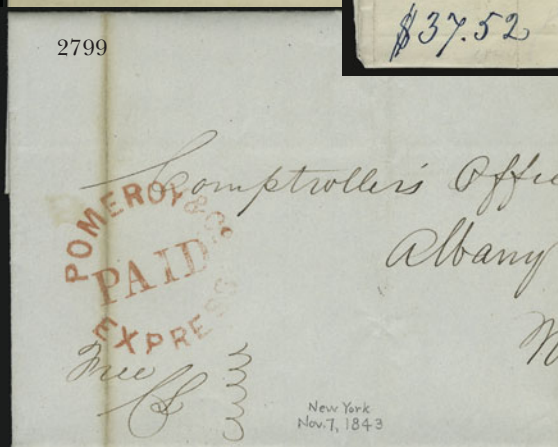 $37.52
2799
Comptroller's Offic
Albany
N
POMEROY & Co.
PAID
EXPRESS
Free
New York
Nov. 7, 1843